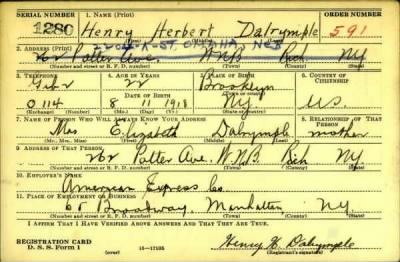 SERIAL NUMBER 1. NAME (Print) ORDER NUMBER
1280 Henry Herbert Dalrymple 591
(First) (Middle) (Last)
ST. OMAHA, NEB
2. ADDRESS (Print)
262 Palter Ave. W.N.B. Rich NY
(Number and street or R. F. D. number) (Town) (County) (State)
3. TELEPHONE 4. AGE IN YEARS 5. PLACE OF BIRTH 6. COUNTRY OF CITIZENSHIP
22 Brooklyn
DATE OF BIRTH (Town or county)
0114 8 11 1918 NY. U.S.
(Exchange) (Number) (Mo.) (Day) (Yr.) (State or country)
7. NAME OF PERSON WHO WILL ALWAYS KNOW YOUR ADDRESS 8. RELATIONSHIP OF THAT PERSON
Mrs Elizabeth Dalrymple mother
(Mr., Mrs., Miss) (First) (Middle) (Last)
9. ADDRESS OF THAT PERSON
262 Palter Ave. W.N.B. Rich NY
(Number and street or R. F. D. number) (Town) (County) (State)
10. EMPLOYER'S NAME
American Express Co.
11. PLACE OF EMPLOYMENT OR BUSINESS
65 Broadway, Manhattan NY.
(Number and street or R. F. D. number) (Town) (County) (State)
I AFFIRM THAT I HAVE VERIFIED ABOVE ANSWERS AND THAT THEY ARE TRUE.
REGISTRATION CARD
D. S. S. Form 1 (over) 16—17105 Henry H. Dalrymple
(Registrant's signature)